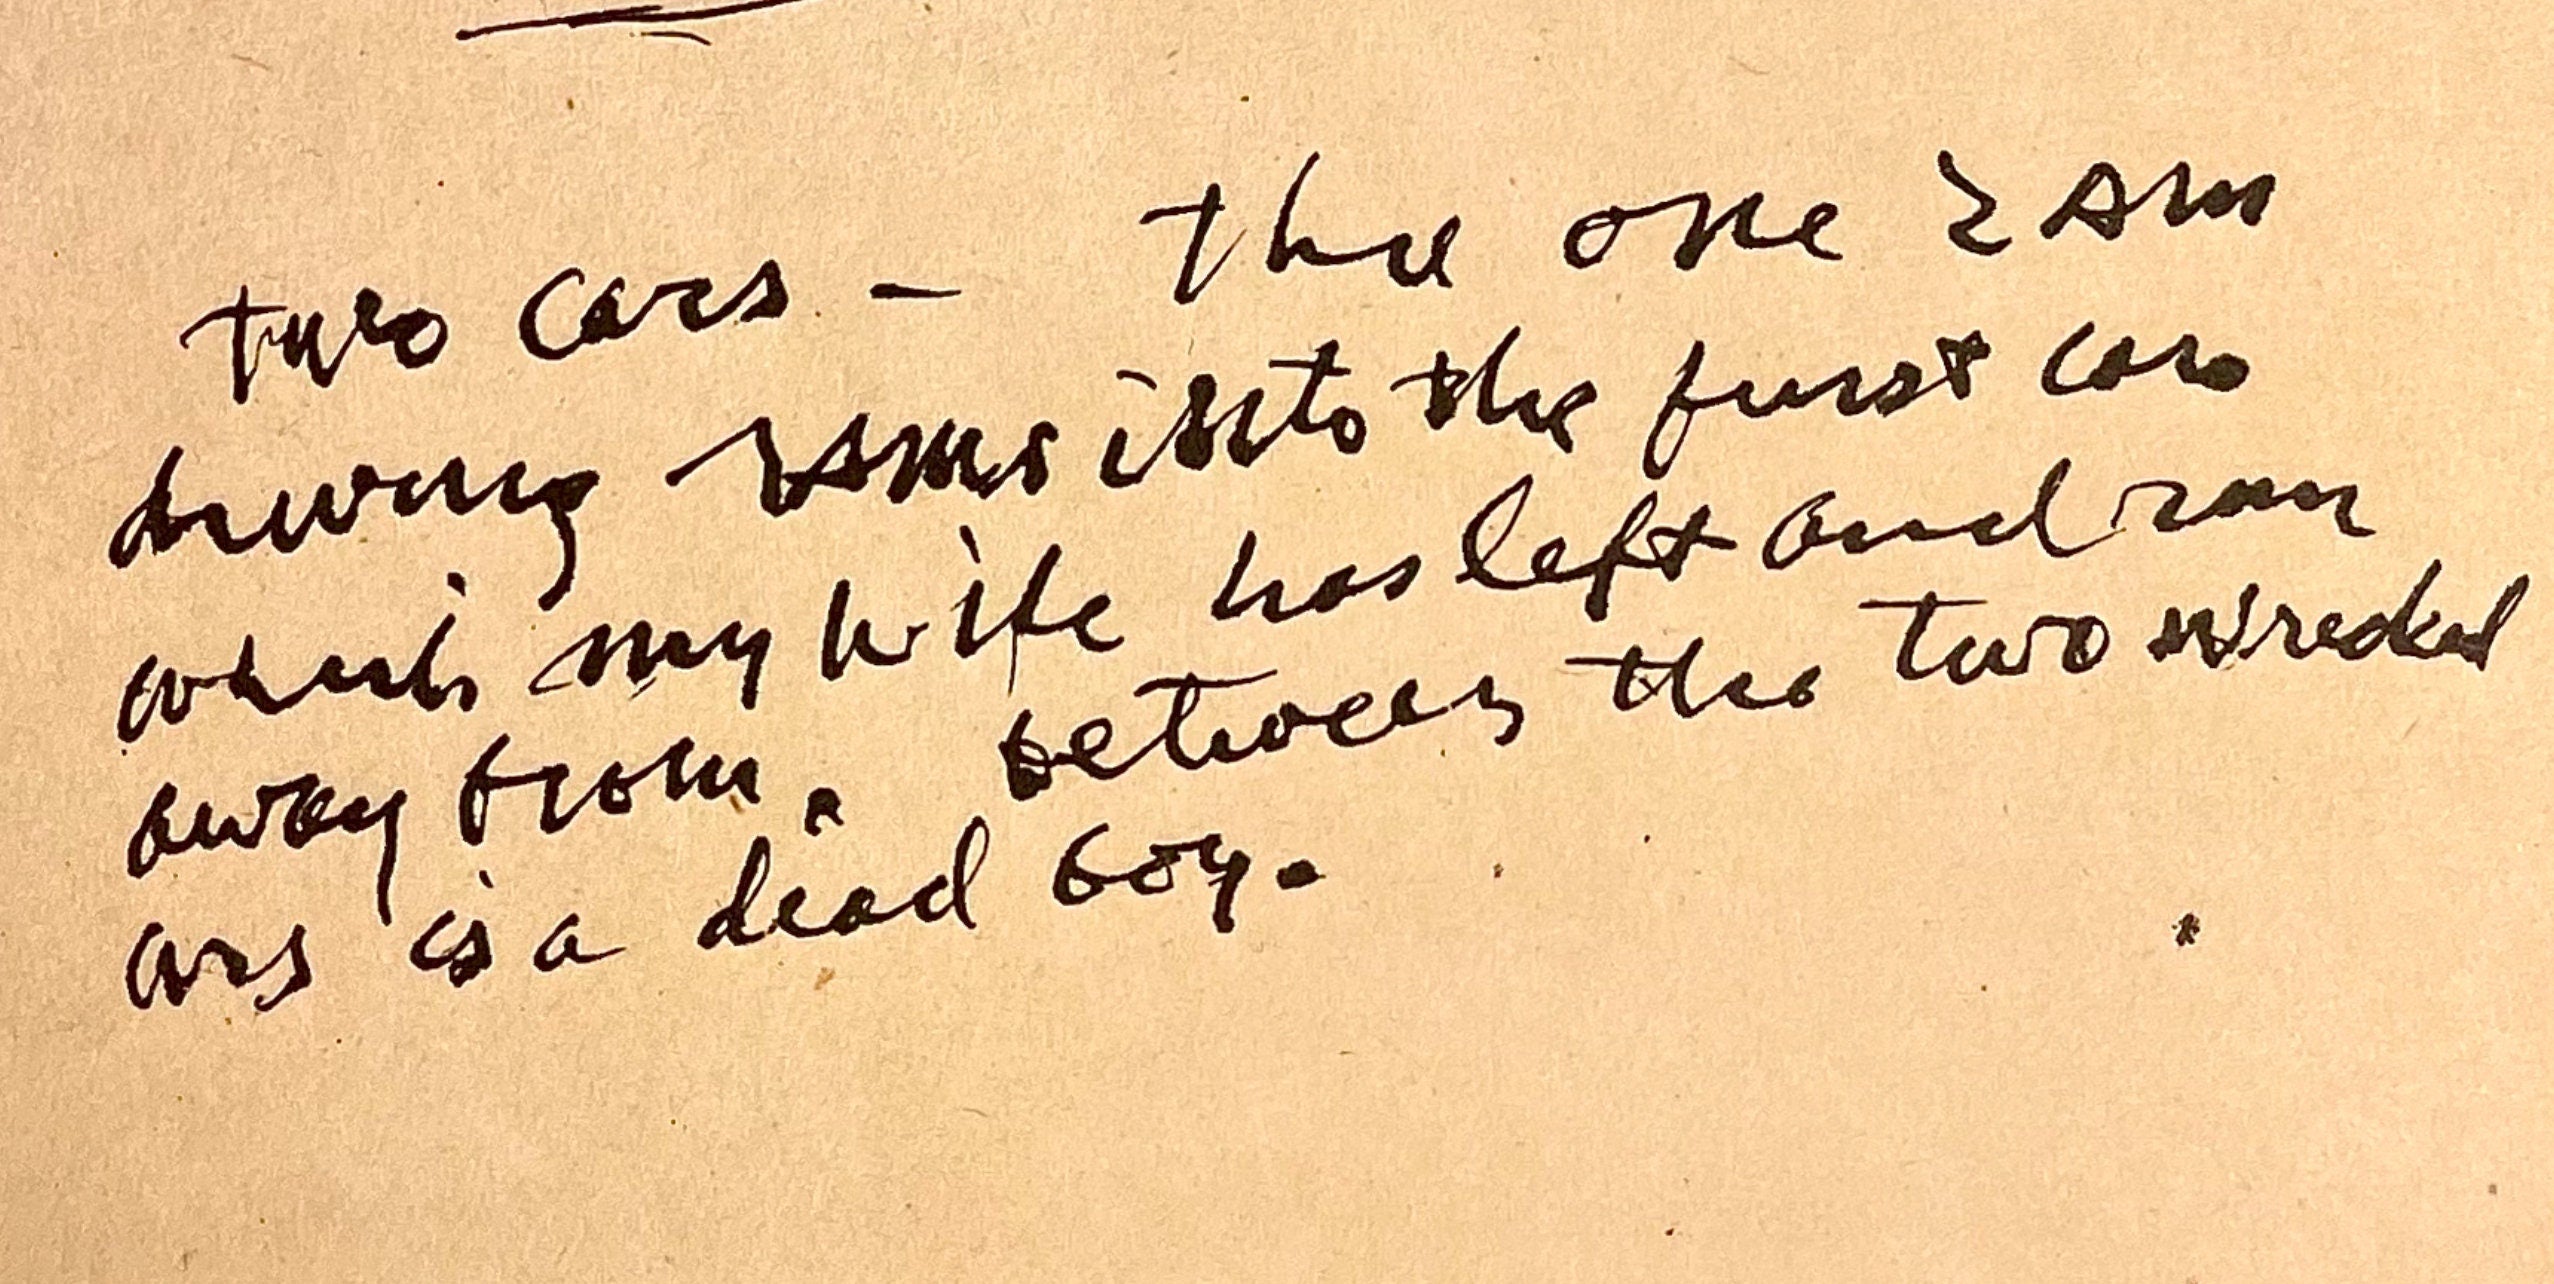 two cars — the one I am
driving rams into the first car
which my wife has left and ran
away from. between the two wrecked
cars is a dead boy.